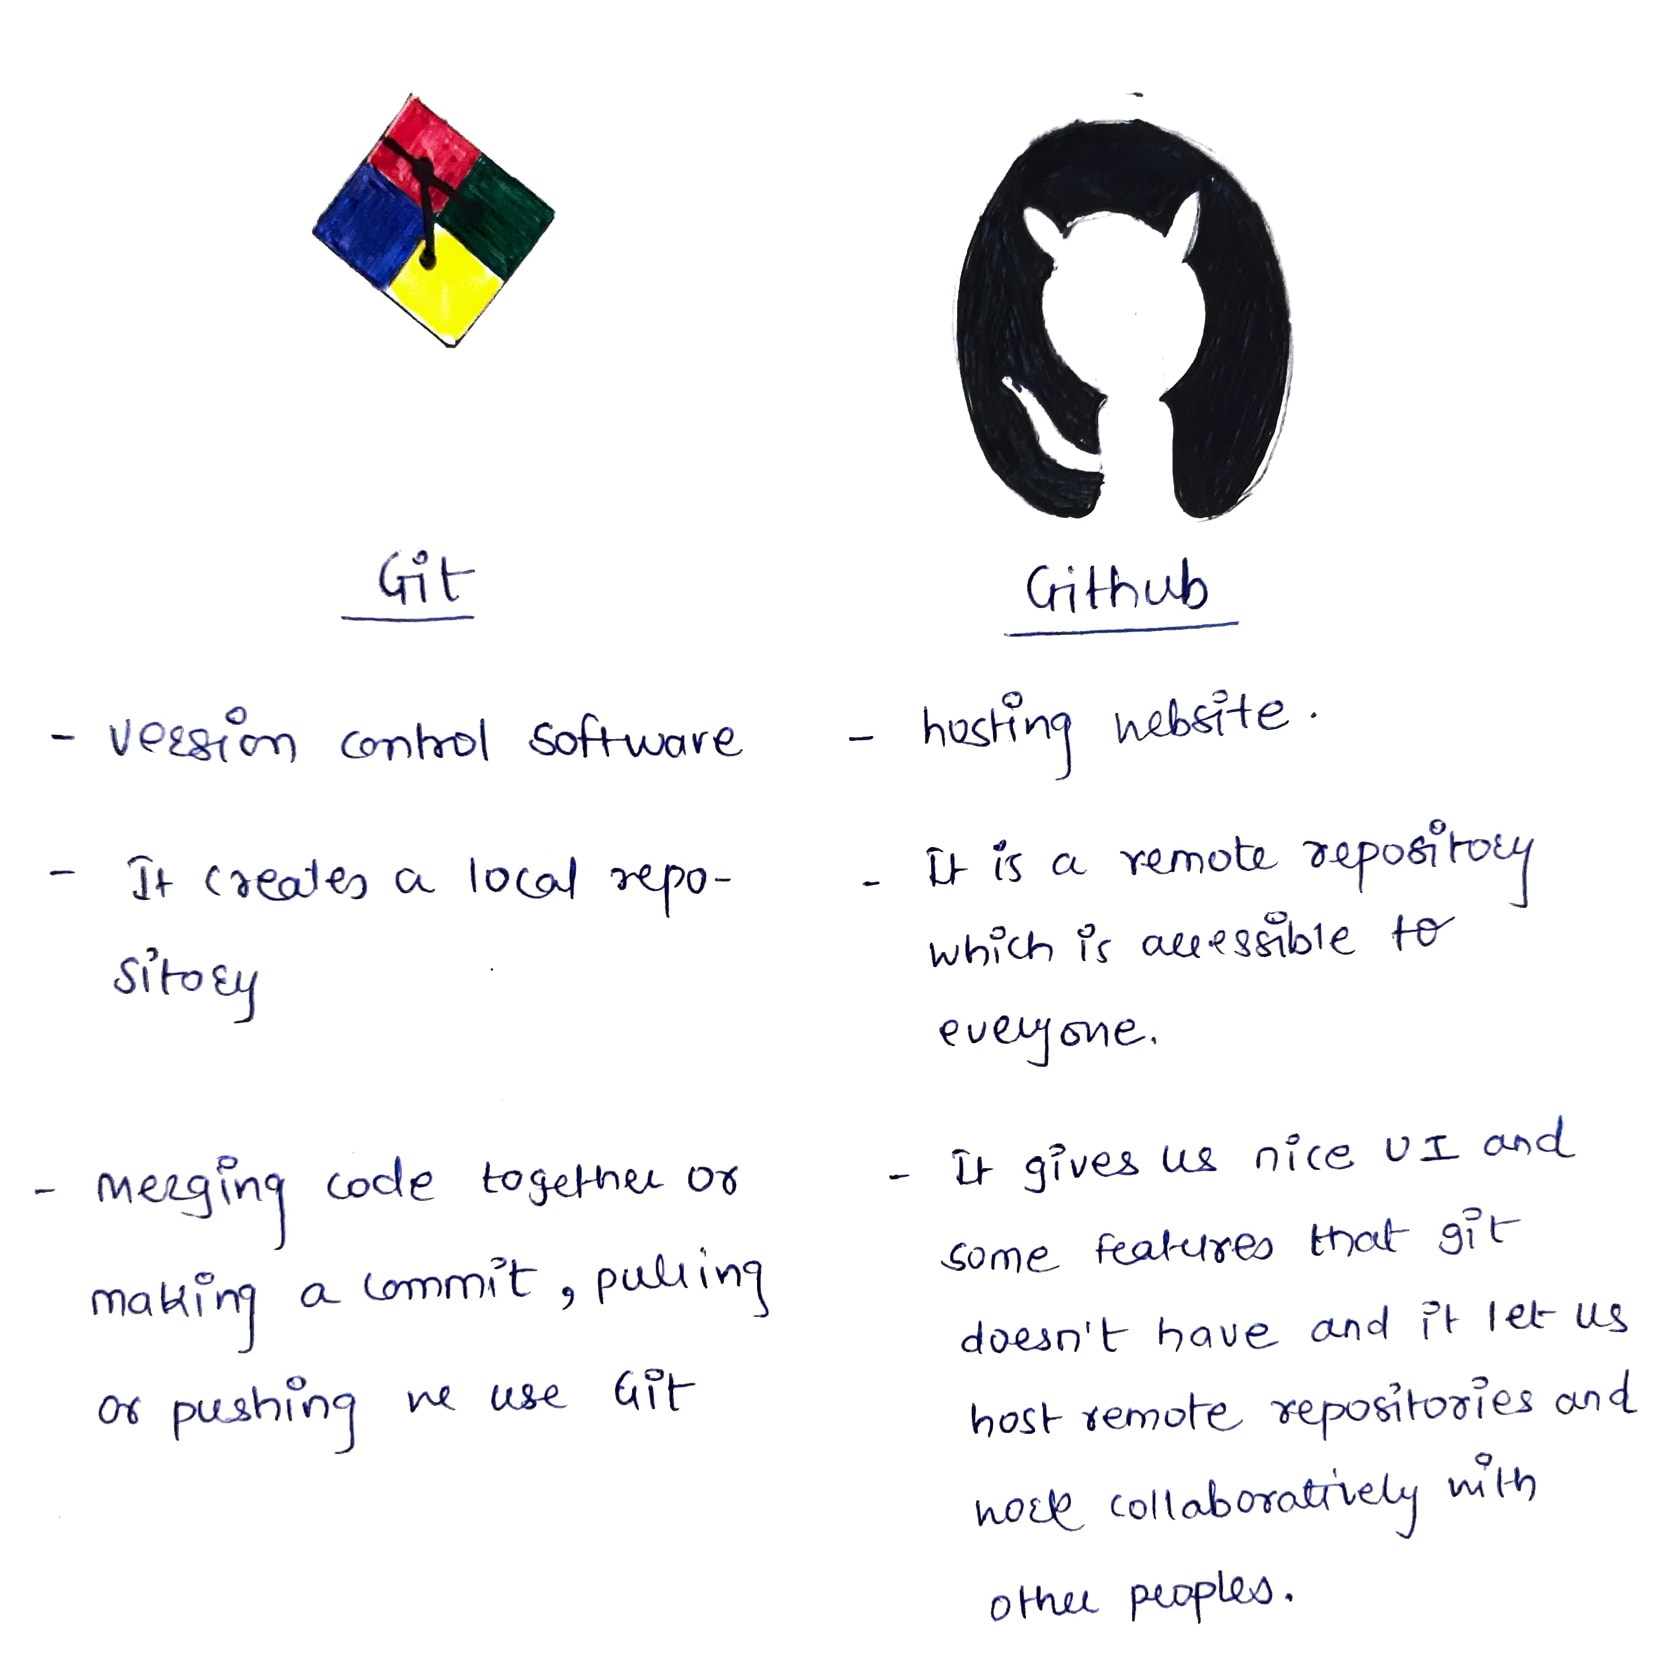 Git
- version control software
- It creates a local repo-
sitory
- merging code together or
making a commit, pulling
or pushing we use Git
Github
- hosting website.
- It is a remote repository
which is accessible to
everyone.
- It gives us nice UI and
some features that git
doesn't have and it let us
host remote repositories and
work collaboratively with
other peoples.